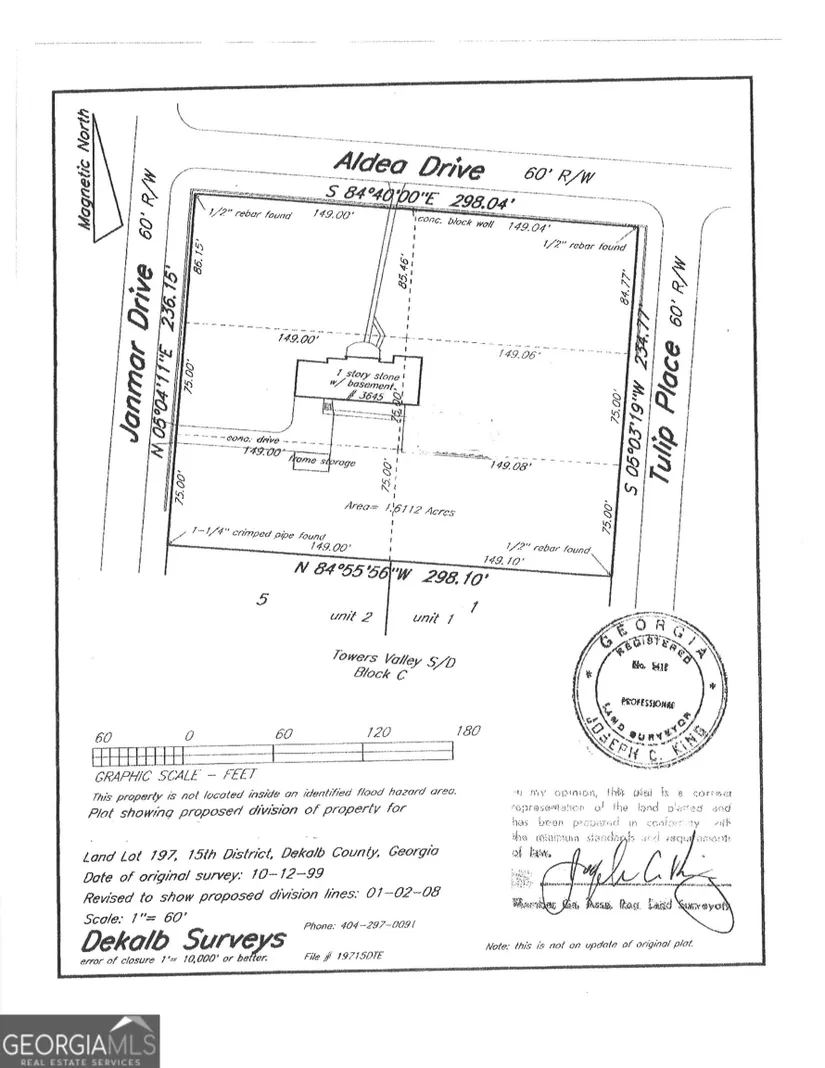 Magnetic North
Aldea Drive 60' R/W
S 84°40'00"E 298.04'
1/2" rebar found
149.00'
conc. block wall
149.04'
1/2" rebar found
Janmar Drive 60' R/W
N 05°04'11"E 236.15'
86.15'
85.46'
84.77'
Tulip Place 60' R/W
S 05°03'19"W 234.77'
149.00'
149.06'
1 story stone
w/ basement
# 3645
75.00'
75.00'
75.00'
conc. drive
149.00'
frame storage
149.08'
75.00'
75.00'
75.00'
Area= 1.6112 Acres
1-1/4" crimped pipe found
149.00'
1/2" rebar found
149.10'
N 84°55'56"W 298.10'
5
1
unit 2
unit 1
Towers Valley S/D
Block C
GEORGIA
REGISTERED
No.
PROFESSIONAL
LAND SURVEYOR
JOSEPH C. KING
60 0 60 120 180
GRAPHIC SCALE - FEET
This property is not located inside an identified flood hazard area.
Plat showing proposed division of property for
Land Lot 197, 15th District, Dekalb County, Georgia
Date of original survey: 10-12-99
Revised to show proposed division lines: 01-02-08
Scale: 1"= 60'
Phone: 404-297-0091
Dekalb Surveys
error of closure 1'= 10,000' or better.
File # 19715DTE
in my opinion, this plat is a correct
representation of the land platted and
has been prepared in conformity with
the minimum standards and requirements
of law.
Member Ga. Assn. Reg. Land Surveyors
Note: this is not an update of original plat.
GEORGIAMLS
REAL ESTATE SERVICES